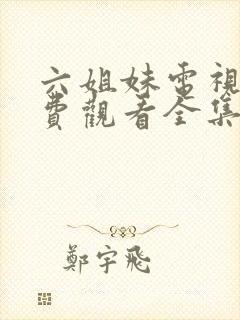 六姐妹電視
費觀看全集
鄭宇飛